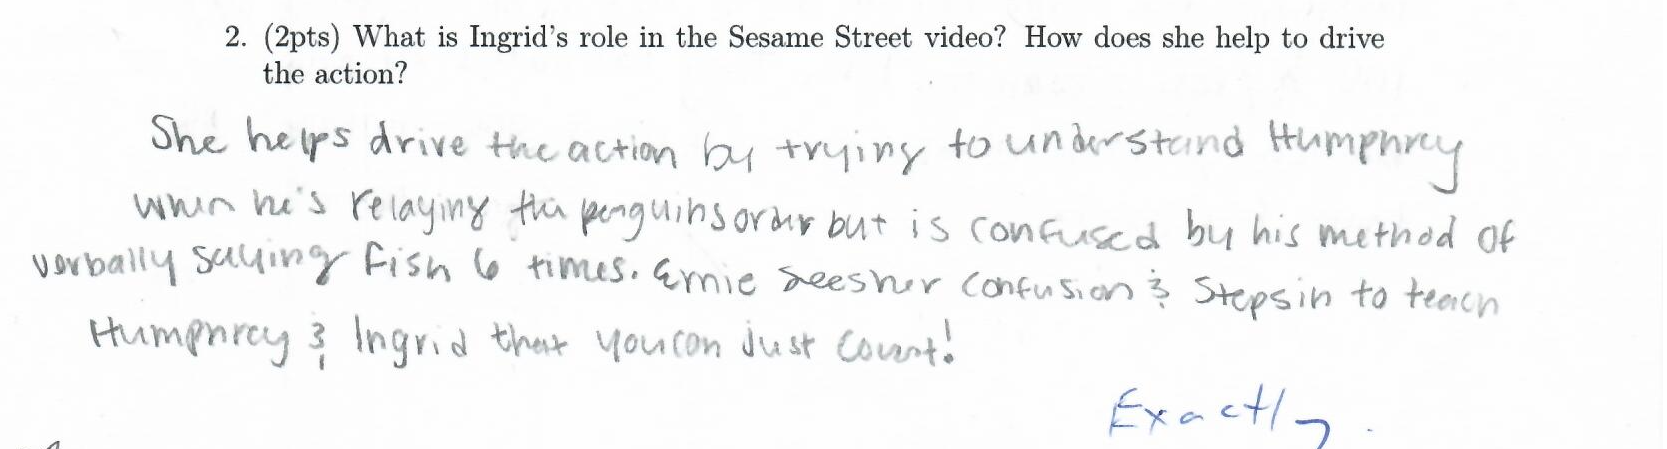 2. (2pts) What is Ingrid's role in the Sesame Street video? How does she help to drive
the action?
She helps drive the action by trying to understand Humphrey
when he's relaying the penguins order but is confused by his method of
verbally saying fish 6 times. Ernie sees her confusion & steps in to teach
Humphrey & Ingrid that you can just count!
Exactly.